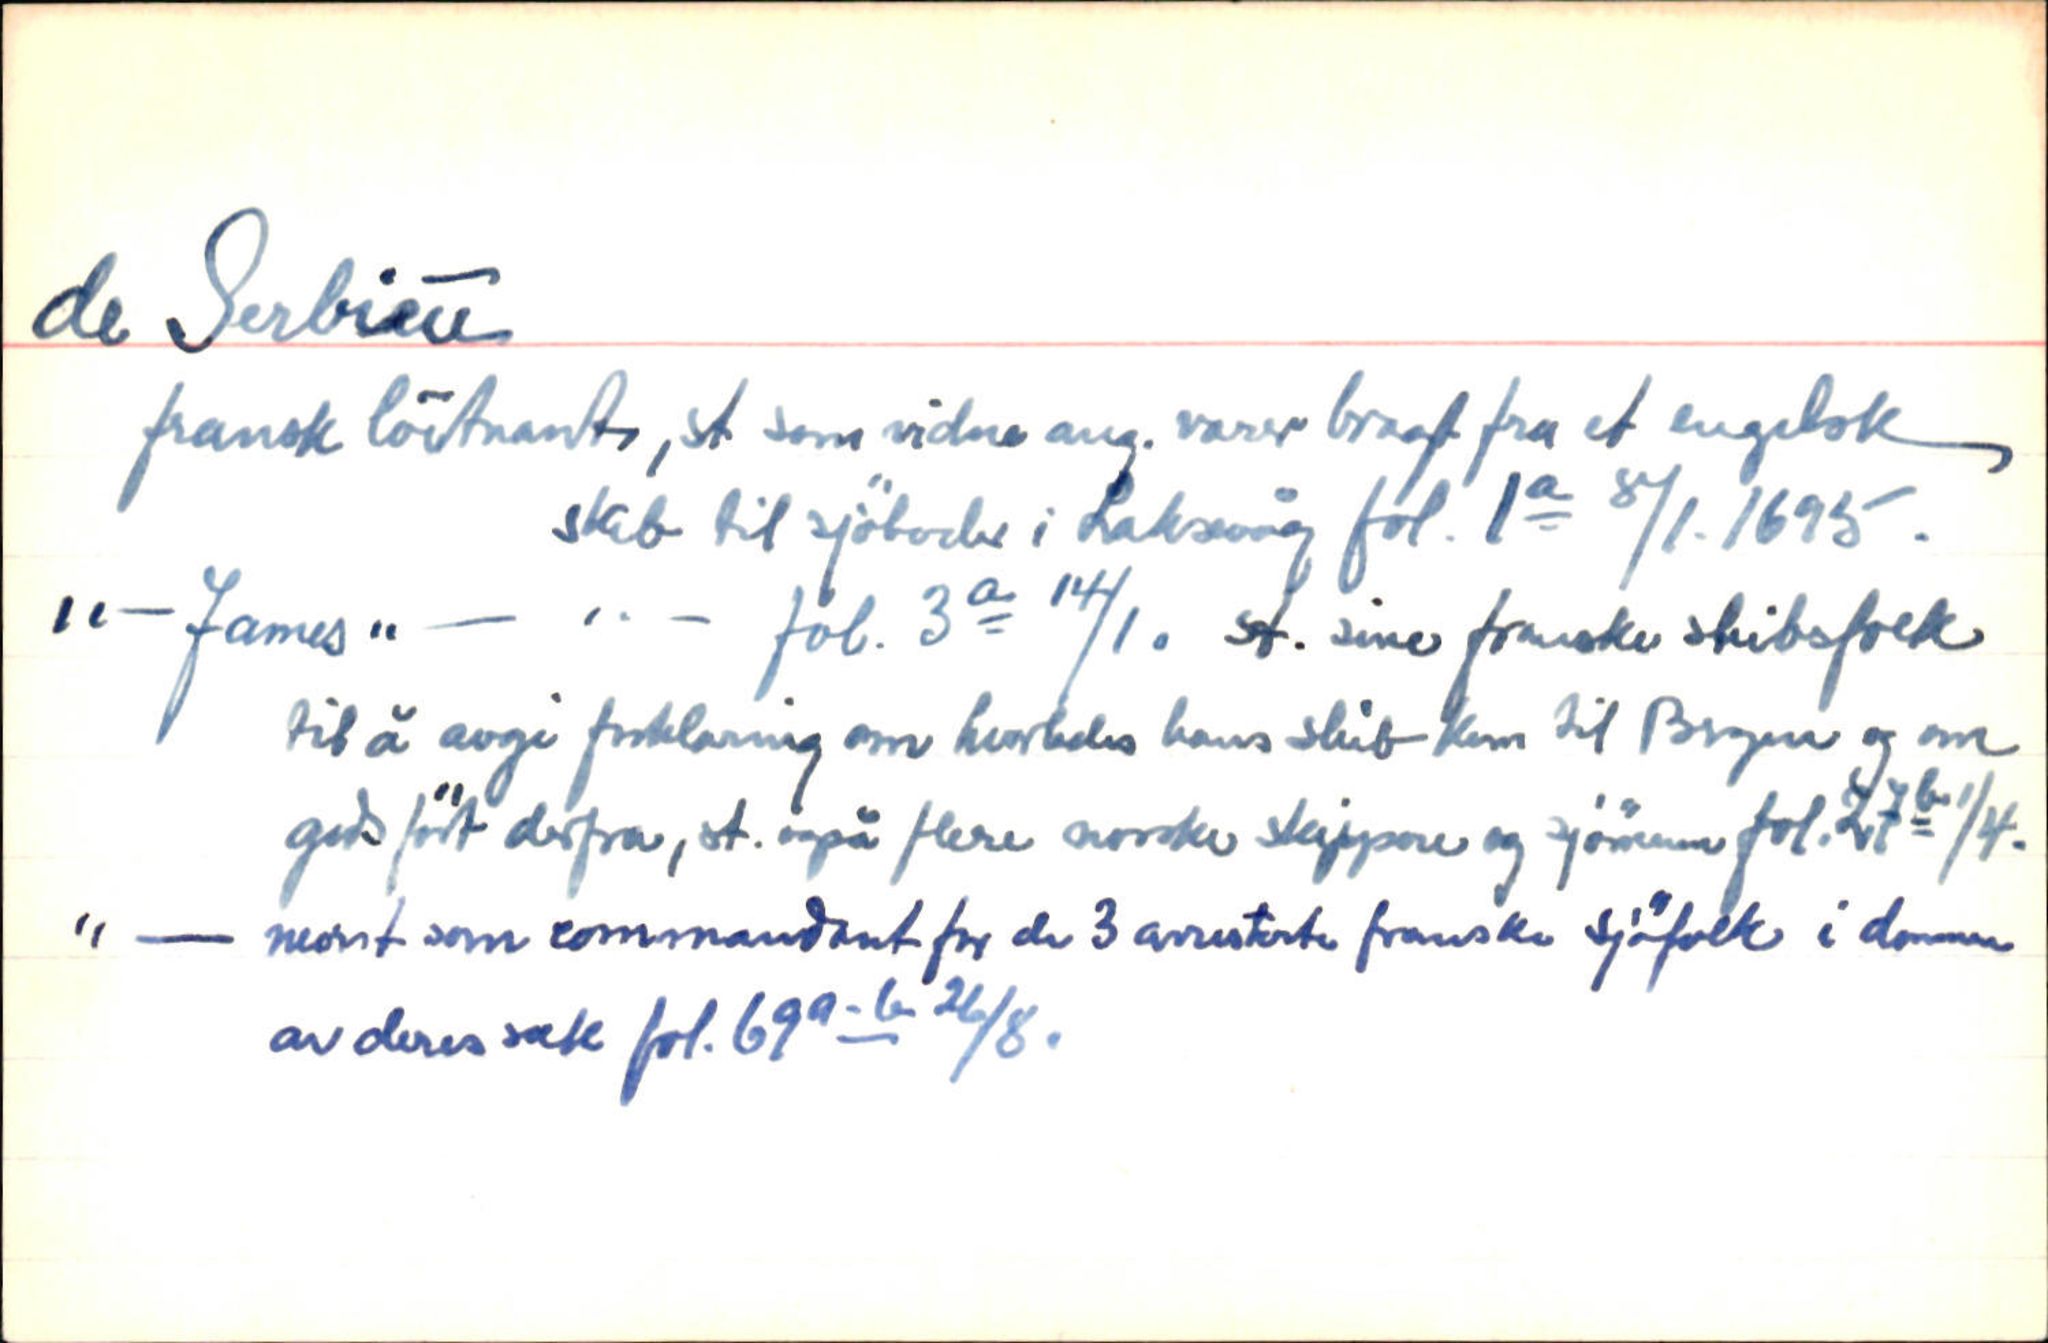 de Serbieu
fransk löitnant, st som vidne ang. varer bragt fra et engelsk
skib til sjöboder i Laksevåg fol. 1a 8/1. 1695.
"— James "— "— fol. 3a 14/1. st. sine franske skibsfolk
til å avgi forklaring om hvorledes hans skib kom til Bergen og om
gods fört derfra, st. også flere norske skippere og sjömenn fol. 27b 1/4.
"— nevnt som commandant for de 3 arresterte franske sjöfolk i dommen
av deres sak fol. 69a-b 26/8.